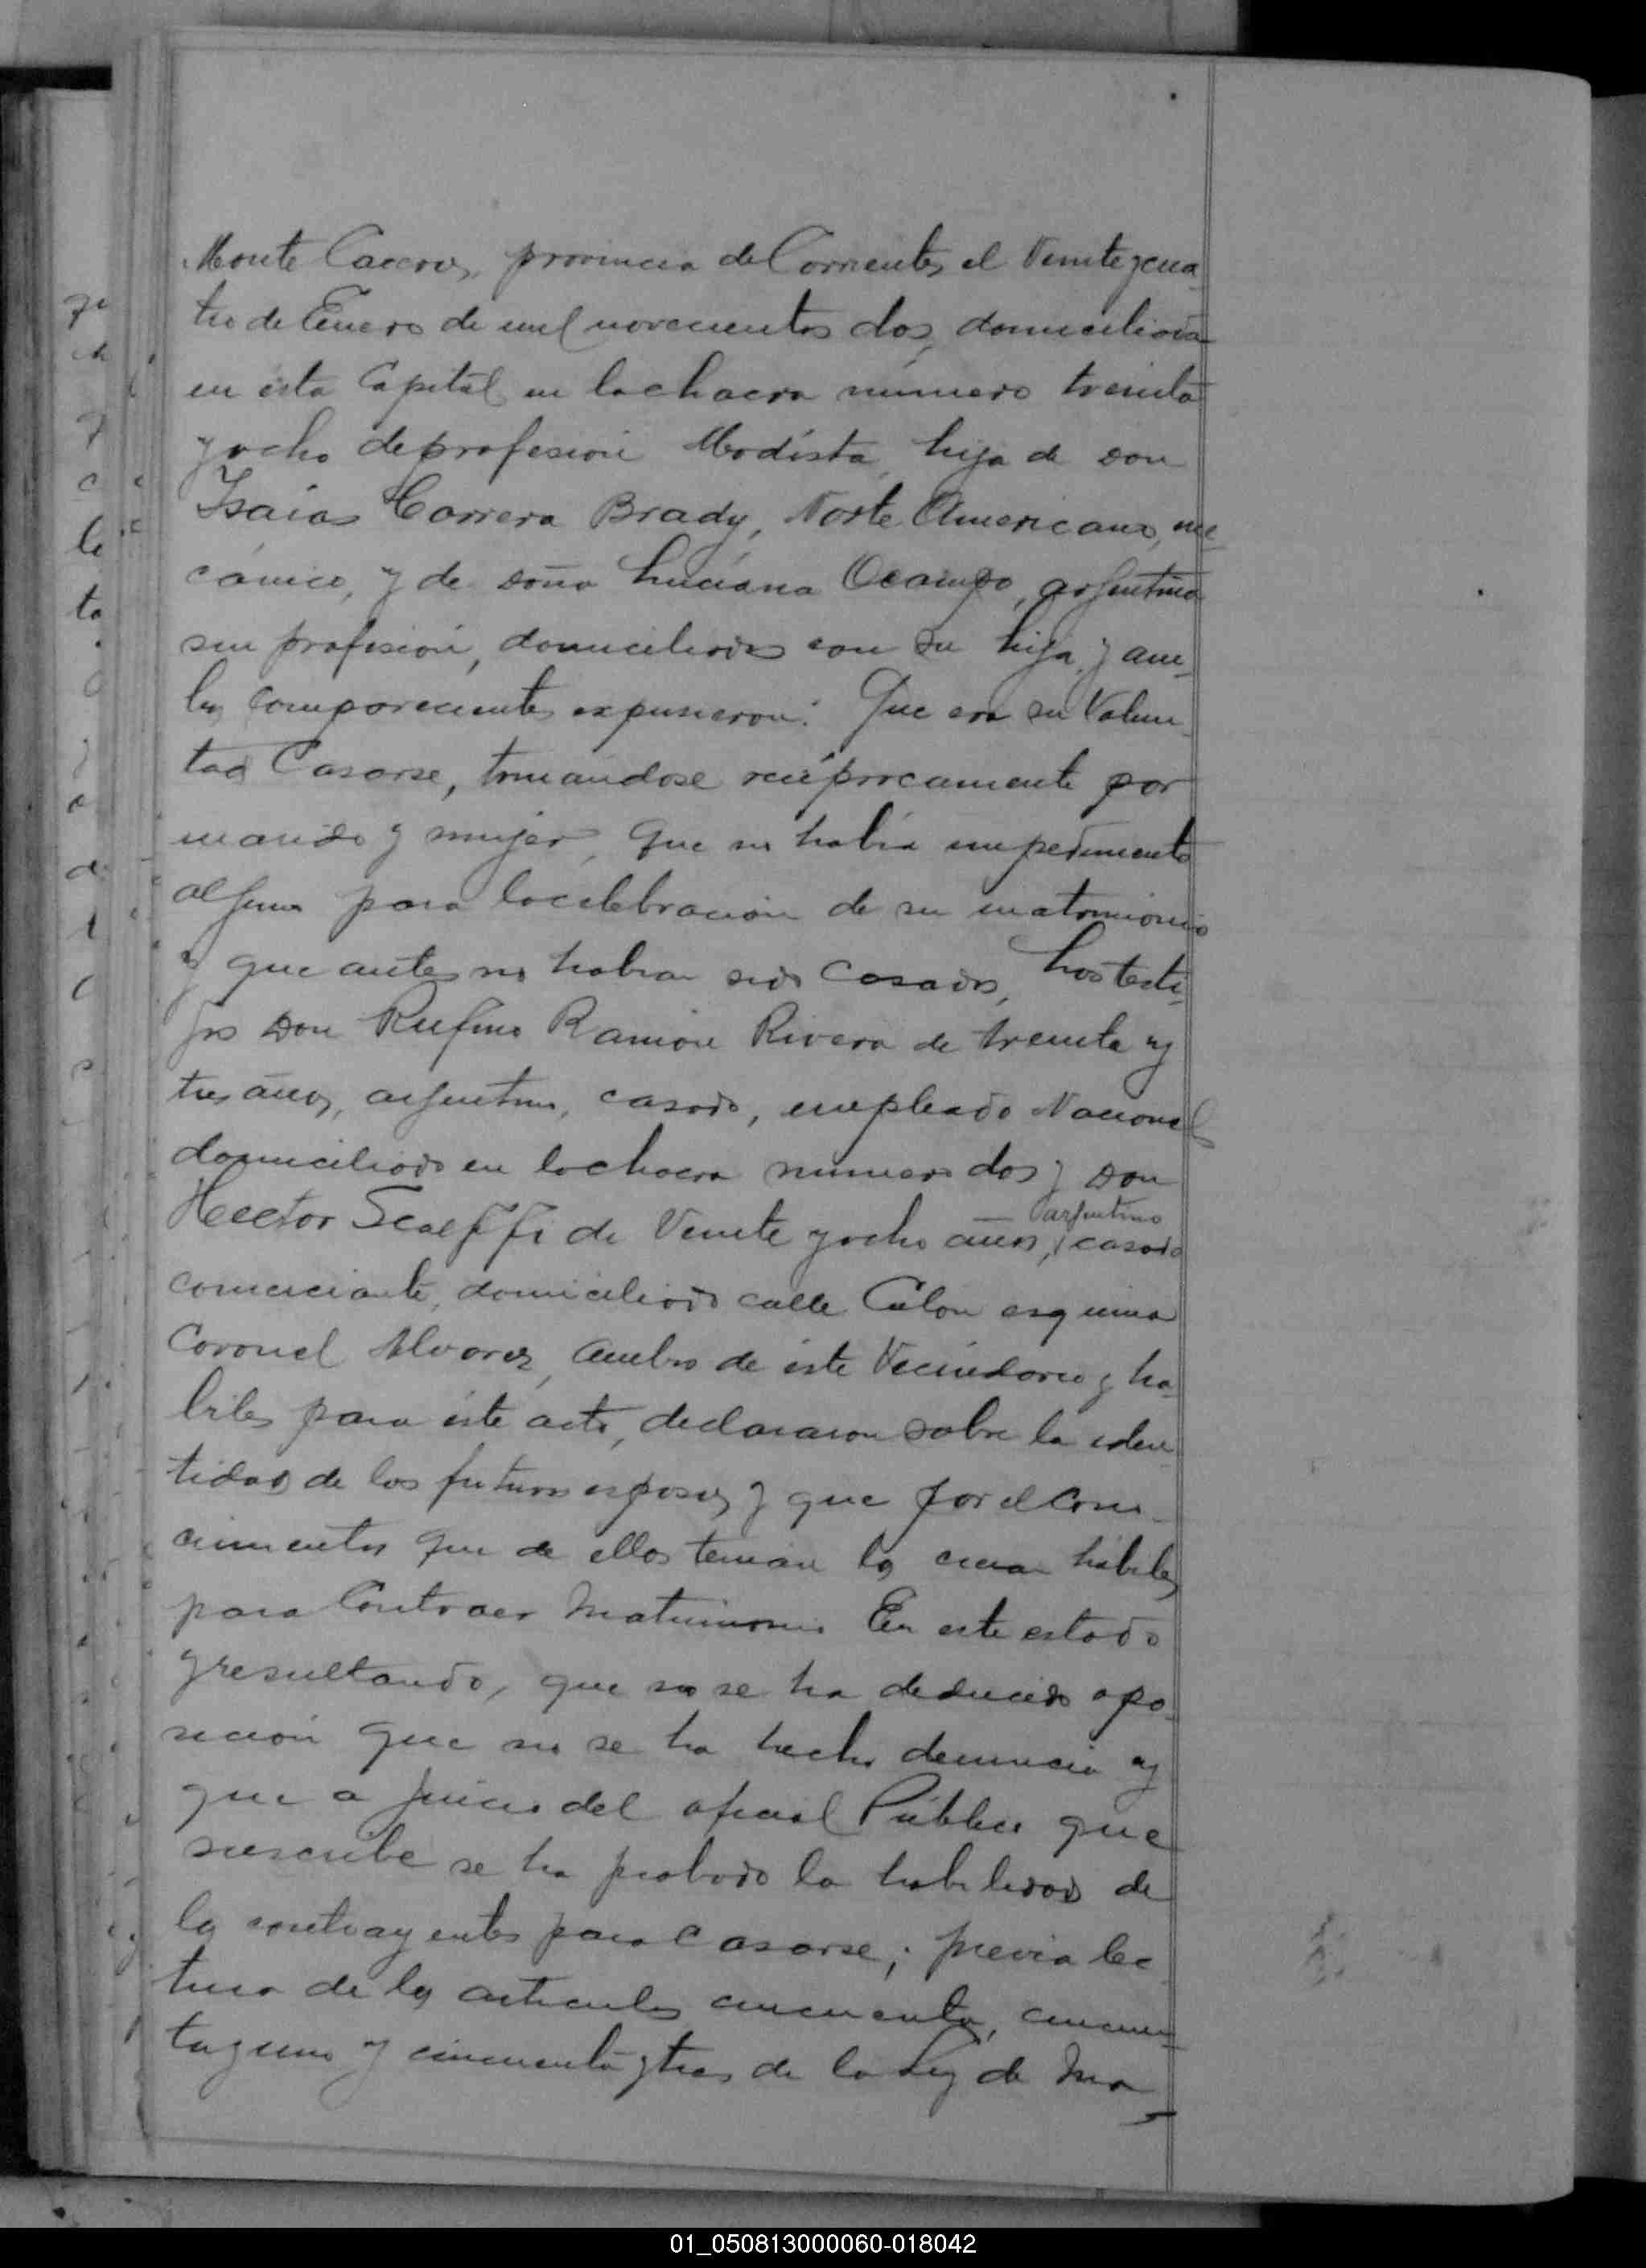 Monte Caceros, provincia de Corrientes el Veinte y cua
tro de Enero de mil novecientos dos, domiciliada
en esta Capital en la chacra número treinta
y ocho de profesión Modista, hija de don
Isaias Carrera Brady, Norte Americano, me
cánico, y de doña Luciana Ocampo, argentina
sin profesión, domiciliados con su hija, y am
bos comparecientes expusieron: Que era su Volun
tad Casarse, tomandose recíprocamente por
marido y mujer, que no había impedimento
alguno para la celebración de su matrimonio
y que antes no habian sido casados, Los testi
gos Don Rufino Ramón Rivera de treinta y
tres años, argentino, casado, empleado Nacional
domiciliado en la chacra numero dos y Don
Hector Scaeffi de Veinte y ocho años, casado
argentino
comerciante, domiciliado calle Colon esquina
Coronel Alvarez, ambos de éste Vecindario y ha
biles para éste acto, declararon sobre la iden
tidad de los futuros esposos y que por el Cono
cimiento que de ellos tenian los creian hábiles
para Contraer Matrimonio. En este estado
y resultando, que no se ha deducido opo
sición que no se ha hecho denuncia y
que a juicio del oficial Público que
suscribe se ha probado la habilidad de
los contrayentes para casarse; previa lec
tura de los articulos cincuenta, cincuen
ta y uno y cincuenta y tres de la Ley de Ma
01_050813000060-018042